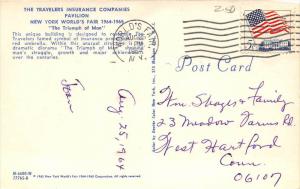 THE TRAVELERS INSURANCE COMPANIES
PAVILION
NEW YORK WORLD'S FAIR 1964-1965
"The Triumph of Man"
This unique building is designed to resemble the
Travelers famed symbol of insurance protection
red umbrella. Within this unusual structure
dramatic diorama "The Triumph of Man" showing
man's struggle, growth and major achievements
over the centuries.
WORLD'S FAIR
N.Y.
2-50
Post Card
Aug. 25, 1964
Wm Shapps & Family
23 Meadow Farms Rd.
West Hartford
Conn.
06107
© 1963 New York World's Fair 1964-1965 Corporation